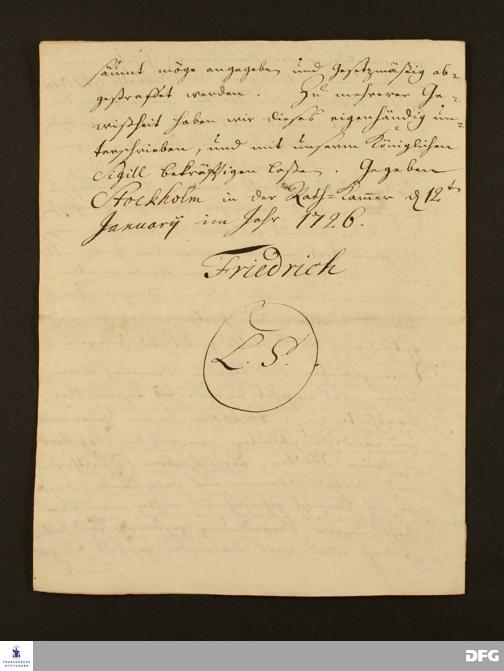 säumt möge angegeben und Gesetzmäßig ab-
gestraffet werden. Zu mehrerer Ge-
wißheit haben wir dieses eigenhändig un-
terschrieben, und mit unserm Königlichen
Sigill bekräfftigen laßen. Gegeben
Stockholm in der Rath-Kamer d 12ten
January im Jahr 1726.
Friedrich
L. S.
FRANCKESCHE
STIFTUNGEN
DFG